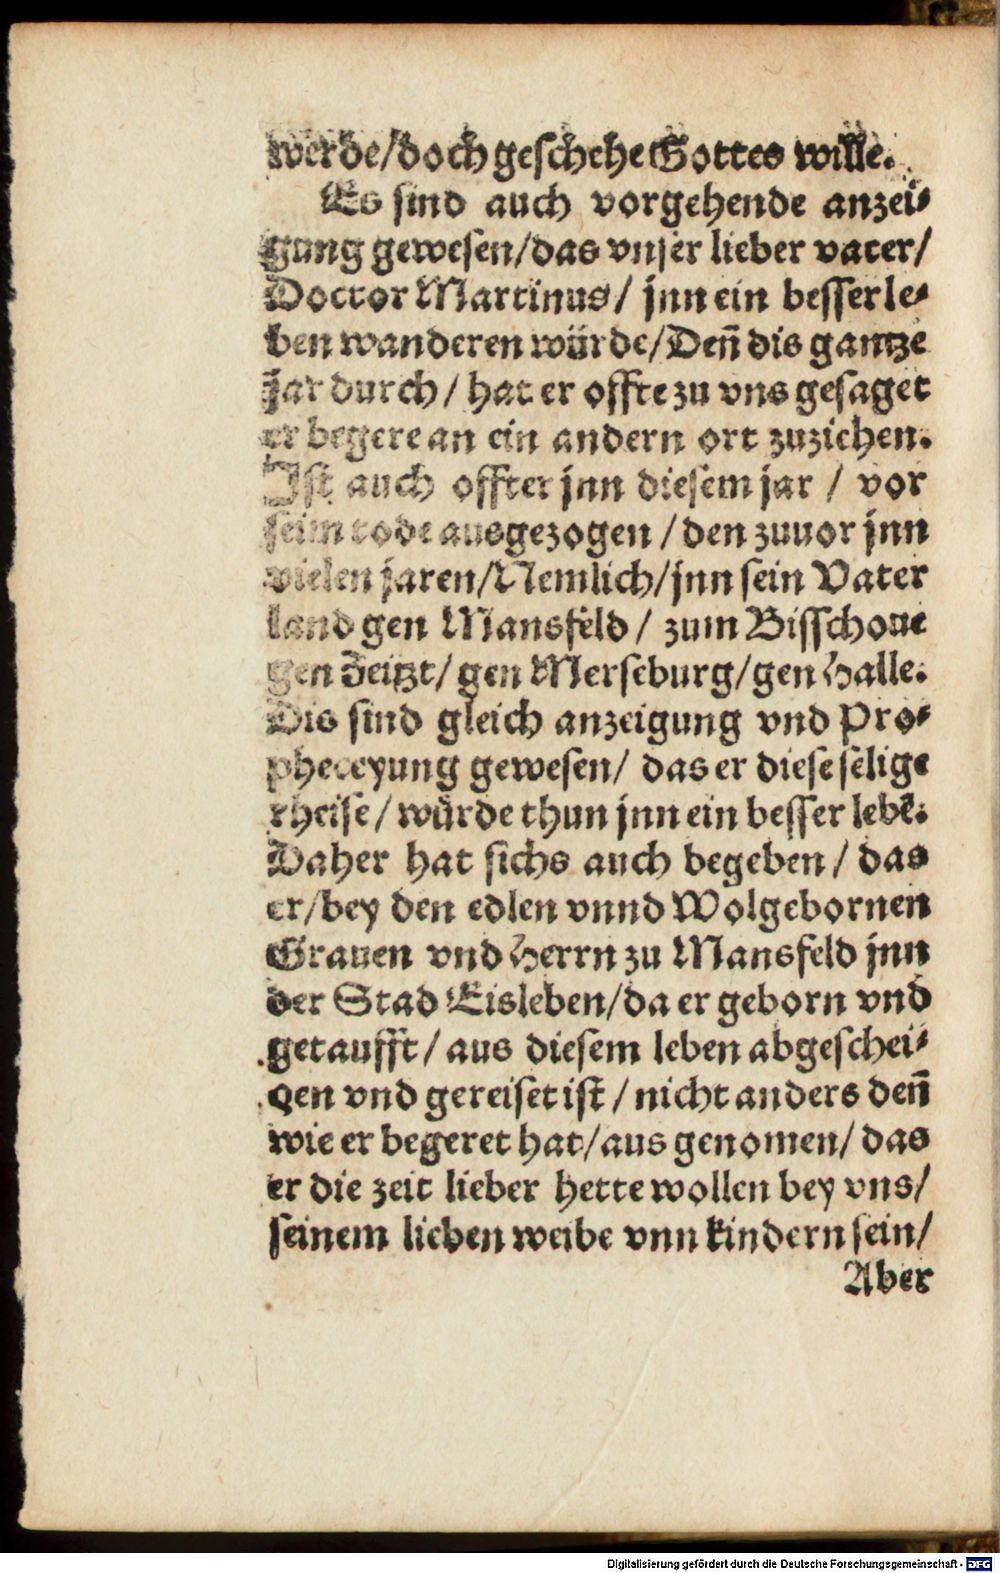 werde/doch geschehe Gottes wille.
Es sind auch vorgehende anzei⸗
gung gewesen/das vnser lieber vater/
Doctor Martinus/ jnn ein besser le⸗
ben wanderen würde/Deñ dis gantze
Jar durch/ hat er offte zu vns gesaget
er begere an ein andern ort zuziehen.
Ist auch offter jnn diesem jar / vor
seim tode ausgezogen / den zuuor jnn
vielen jaren/Nemlich/jnn sein Vater
land gen Mansfeld / zum Bisschoue
gen Zeitzt/ gen Merseburg/gen Halle.
Dis sind gleich anzeigung vnd Pro⸗
pheceyung gewesen/ das er diese selige
rheise/ würde thun jnn ein besser lebẽ.
Daher hat sichs auch begeben/ das
er/bey den edlen vnnd Wolgebornen
Grauen vnd Herrn zu Mansfeld jnn
der Stad Eisleben/da er geborn vnd
getaufft/ aus diesem leben abgeschei⸗
den vnd gereiset ist / nicht anders deñ
wie er begeret hat/aus genomen/ das
er die zeit lieber hette wollen bey vns/
seinem lieben weibe vnn kindern sein/
Aber
Digitalisierung gefördert durch die Deutsche Forschungsgemeinschaft - DFG